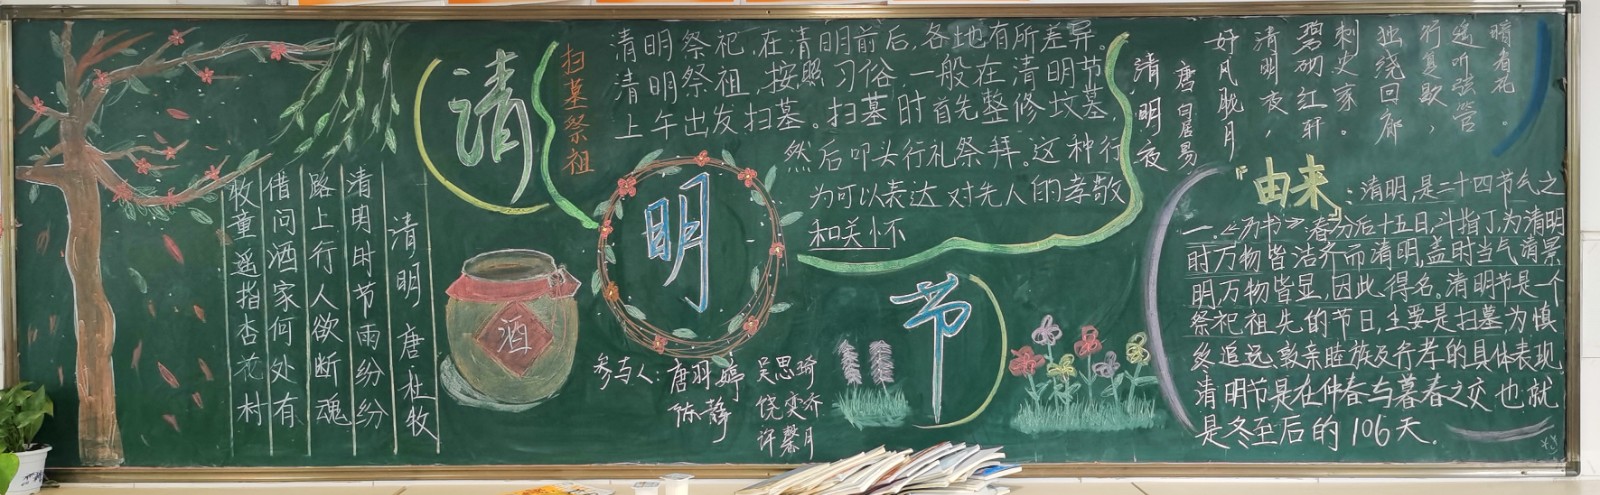 清明 唐·杜牧
清明时节雨纷纷
路上行人欲断魂
借问酒家何处有
牧童遥指杏花村
清
明
节
酒
扫墓祭祖
清明祭祀,在清明前后,各地有所差异。
清明祭祖,按照习俗,一般在清明节
上午出发扫墓。扫墓时首先整修坟墓,
然后叩头行礼祭拜。这种行
为可以表达对先人的孝敬
和关怀
参与人:唐羽婷
陈静
吴思瑜
饶奕乔
许馨月
清明夜
唐 白居易
好风胧月
清明夜,
碧砌红轩
刺史家。
独绕回廊
行复歇,
遥听弦管
暗看花。
『由来』:清明,是二十四节气之
一。《历书》春分后十五日,斗指丁,为清明
时万物皆洁齐而清明,盖时当气清景
明,万物皆显,因此得名。清明节是一个
祭祀祖先的节日,主要是扫墓为慎
终追远,敦亲睦族及行孝的具体表现
清明节是在仲春与暮春之交也就
是冬至后的106天.